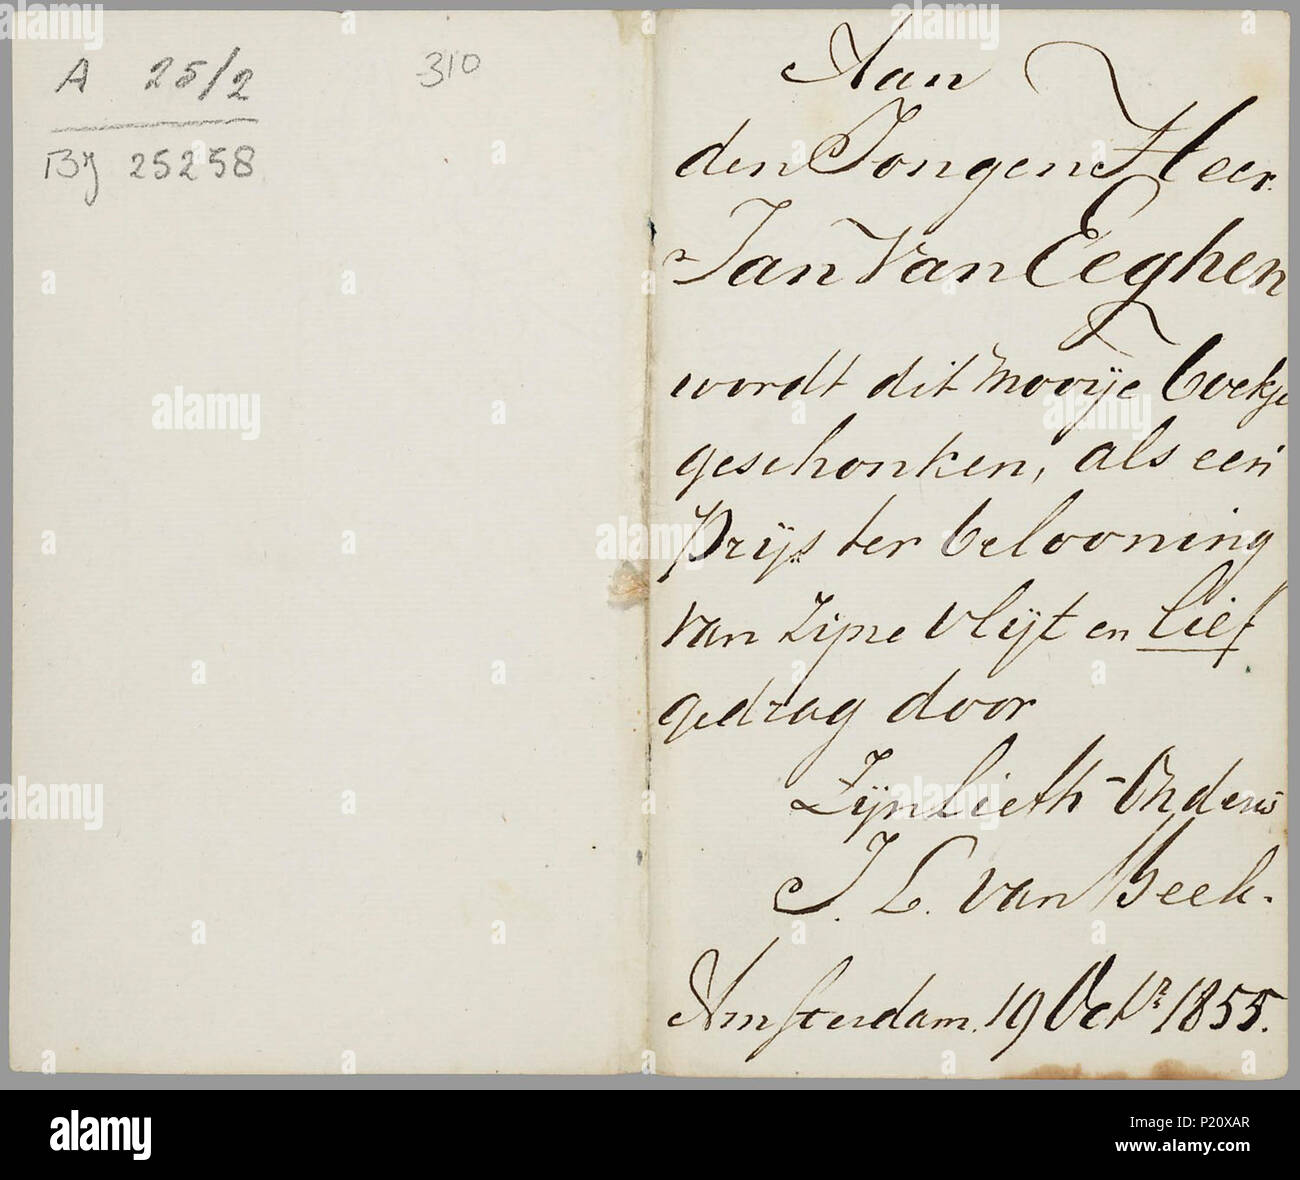 A 25/2
310
By 25258
Aan
den Jongen Heer
Jan Van Eeghen
wordt dit mooije boekje
geschonken, als een
Prijs ter belooning
van zijne vlijt en lief
gedrag door
Zijn Lieth-Onderw
J. L. van Beek.
Amsterdam. 19 Octr 1855.
alamy
P20XAR
www.alamy.com